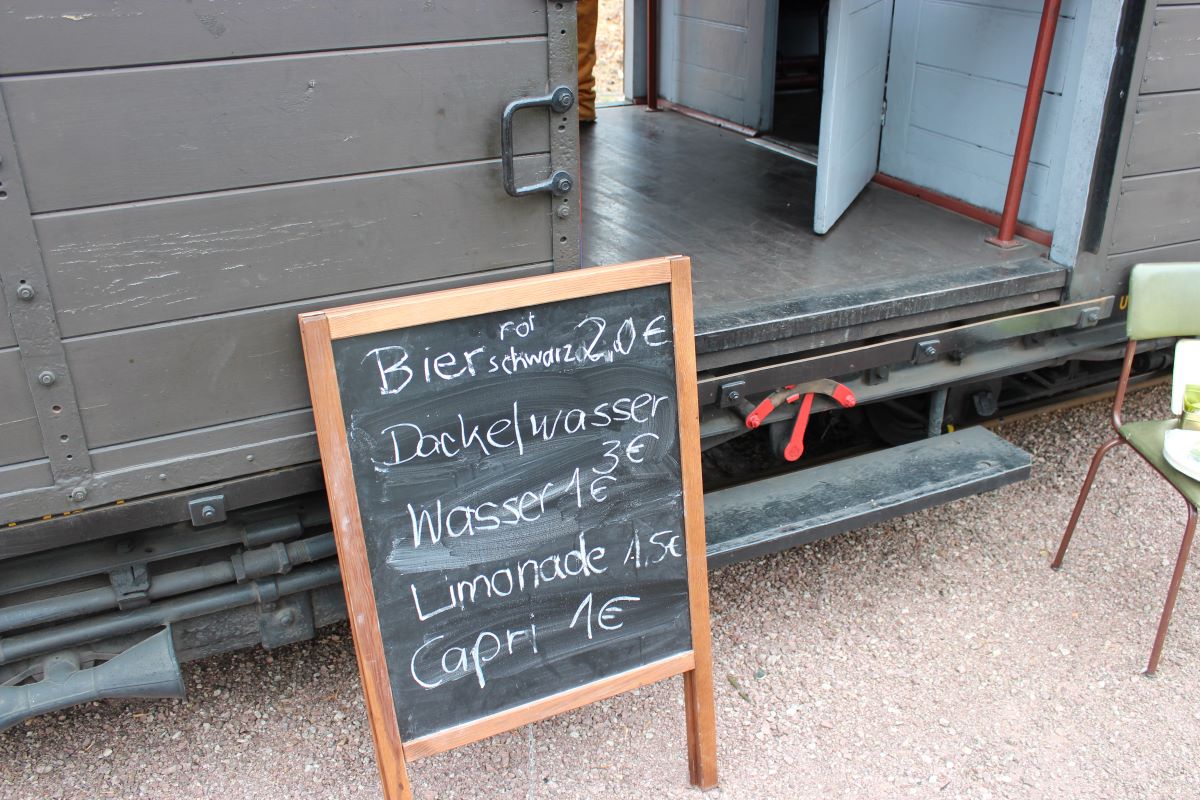 rot
Bier schwarz 2,0 €
Dackelwasser
3€
Wasser 1€
Limonade 1,5€
Capri 1€